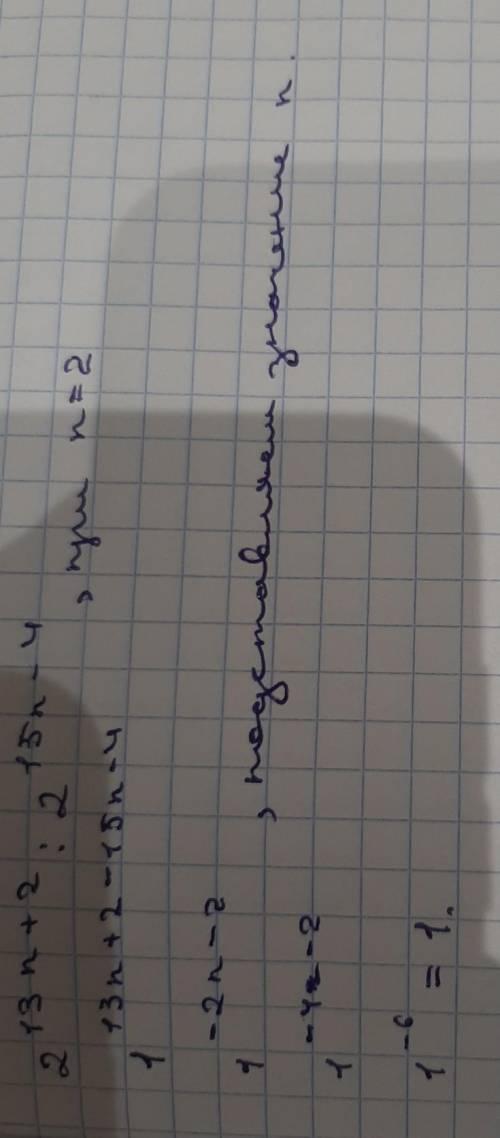 2^{13n+2} : 2^{15n-4}, при n=2
1^{13n+2-15n-4}
1^{-2n-2}, подставляем значение n.
1^{-4-2}
1^{-6} = 1.